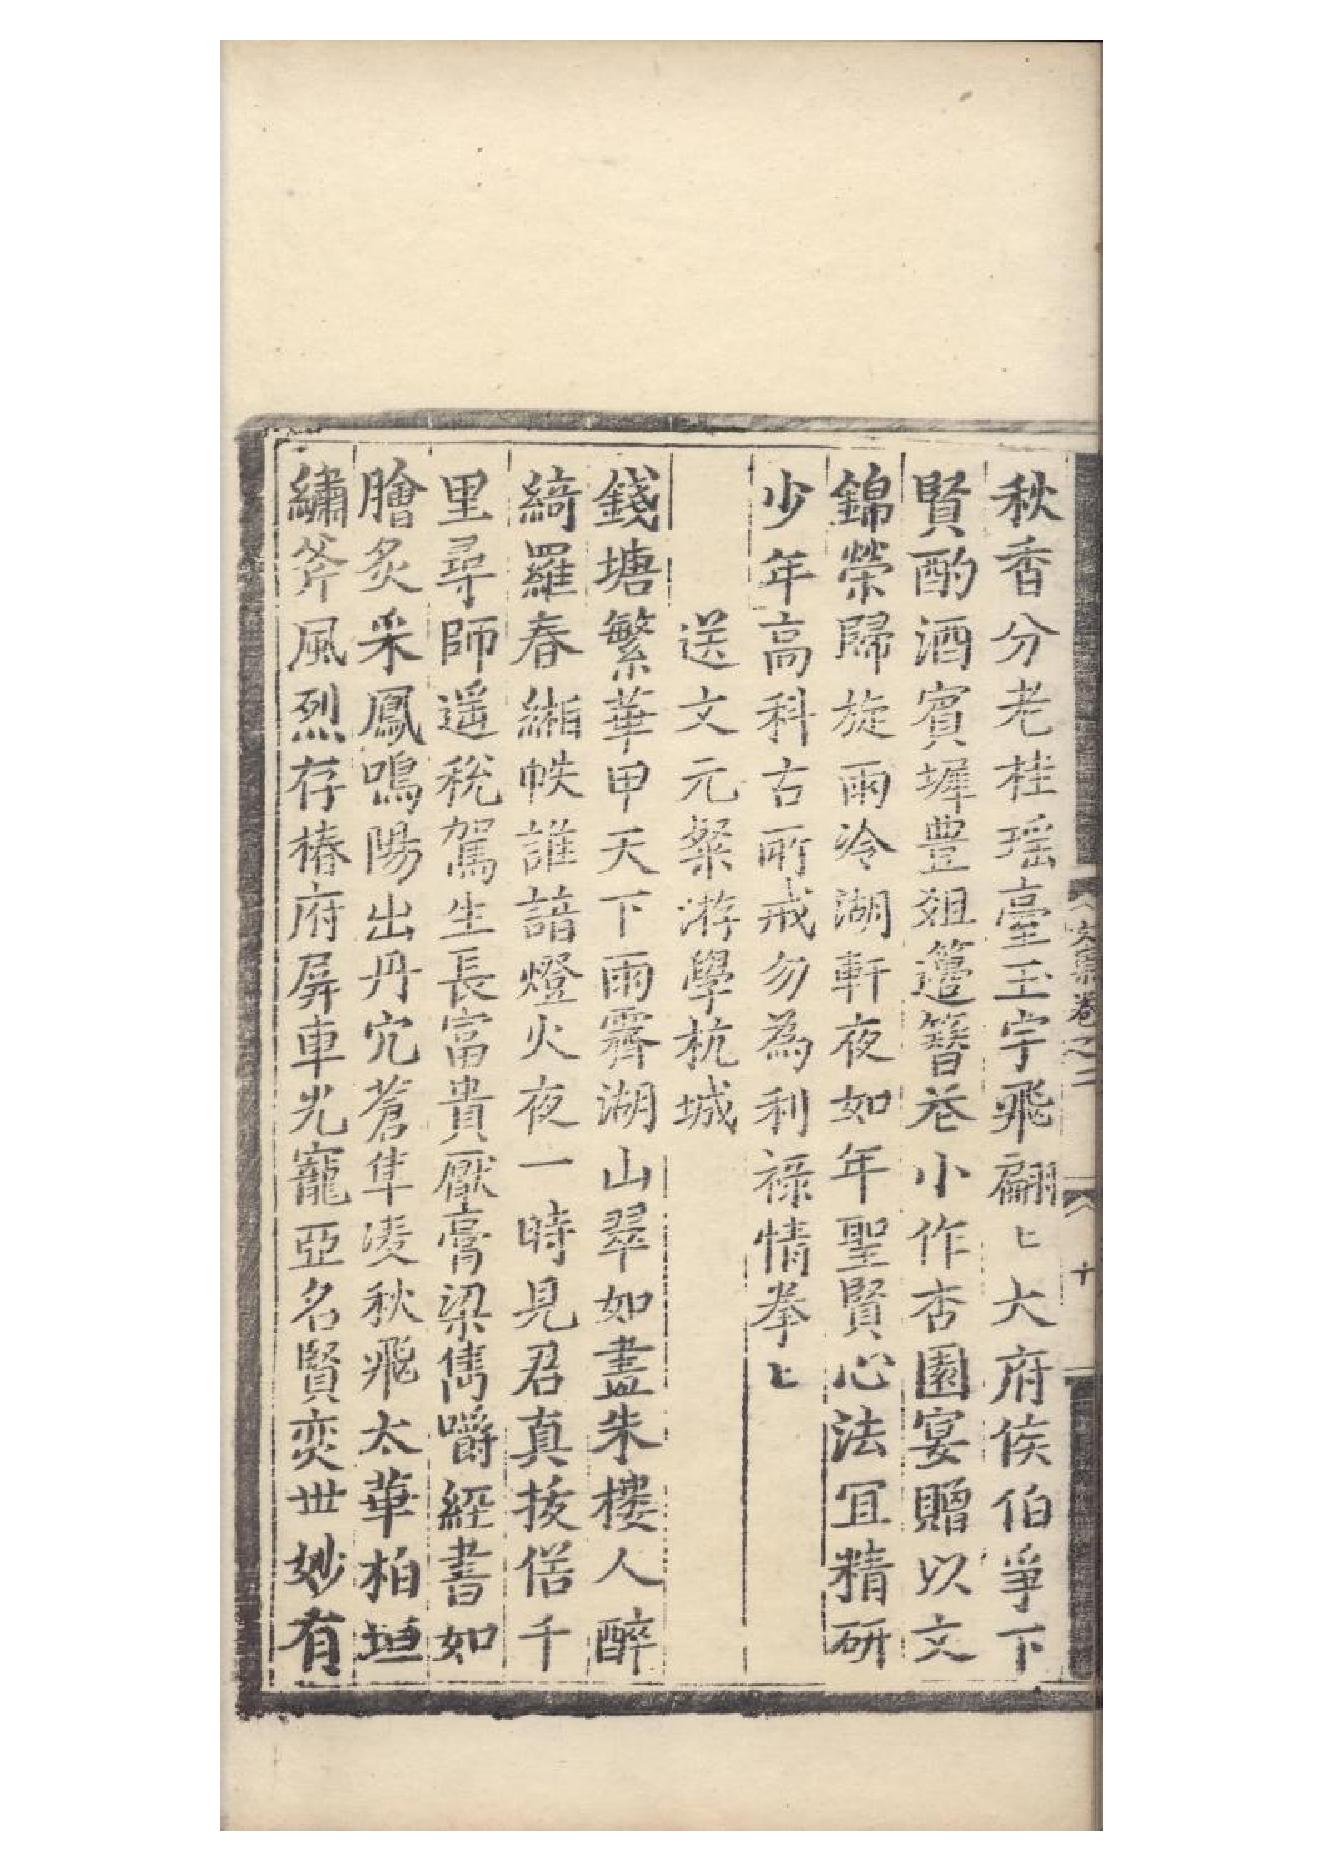 秋香分老桂瑶臺玉宇飛翩〻大府侯伯爭下
賢酌酒賓墀豊爼籩簪巻小作杏園宴贈以文
錦榮歸旋雨冷湖軒夜如年聖賢心法冝精研
少年高科古所戒勿為利祿情拳〻
送文元粲游學杭城
錢塘繁華甲天下雨霽湖山翠如畫朱樓人醉
綺羅春緗帙誰諳燈火夜一時見君真拔俗千
里尋師遥稅駕生長富貴厭膏梁雋嚼經書如
膾炙采鳳鳴陽出丹穴蒼隼凌秋飛太華柏垣
繡斧風烈存椿府屏車光寵亞名賢奕世妙有
文集巻之二
十